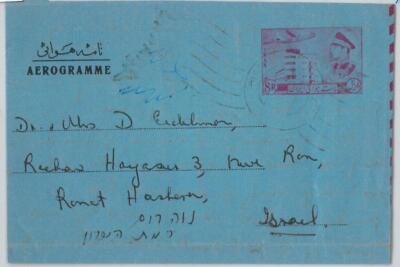 نامه هوائی
AEROGRAMME
8R
Dr. & Mrs D
3, Neve Ron,
Ramat Hasharon,
Israel.
נוה רום
רמת השרון